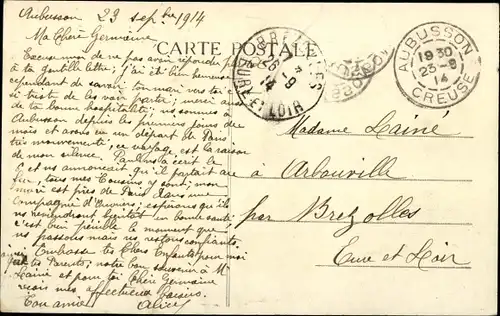 Aubusson 23 septbre 1914
Ma Chère Germaine
Excuse moi de ne pas avoir répondu plus tôt
à ta gentille lettre ; j'ai été bien heureuse
cependant de savoir ton mari vers toi c'est
si triste de les voir partir ; merci aussi
de ta bonne hospitalité ; ns sommes à
Aubusson depuis les premiers jours de
mais et avons eu un départ de Paris
très mouvementé, ce voyage est la raison
de mon silence. a écrit le
et ns annonçait qu'il partait au
feu, tous mes Cousins y sont ; mon
mari est près de Paris dans une
Compagnie d'Ouvriers ; espérons qu'ils
ns reviendront bientôt en bonne santé
c'est bien pénible le moment que
ns passons mais ns restons confiants.
Embrasse tes Chers Enfants pour moi
tes Parents, notre bon souvenir à Mr
Lainé et pour toi Chère Germaine
reçois mes affectueux baisers.
Ton amie
CARTE POSTALE
EURE-ET-LOIR
26-9
14
AUBUSSON
1930
23-9
14
CREUSE
Madame Lainé
à Arbouville
par Brezolles
Eure et Loir